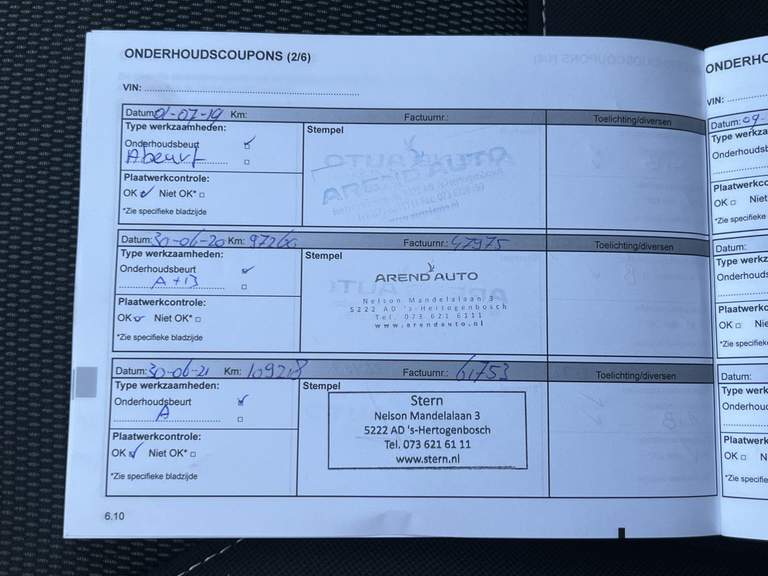 ONDERHOUDSCOUPONS (2/6)
VIN:
Datum: 01-07-19 Km: Factuurnr.: Toelichting/diversen
Type werkzaamheden: Stempel
Onderhoudsbeurt
A beurt
Plaatwerkcontrole:
OK Niet OK*
*Zie specifieke bladzijde
AREND AUTO
Datum: 30-06-20 Km: 97260 Factuurnr.: 47975 Toelichting/diversen
Type werkzaamheden: Stempel
Onderhoudsbeurt
A+B
Plaatwerkcontrole:
OK Niet OK*
*Zie specifieke bladzijde
AREND AUTO
Nelson Mandelalaan 3
5222 AD 's-Hertogenbosch
Tel. 073 621 6111
www.arendauto.nl
Datum: 30-06-21 Km: 109218 Factuurnr.: 61753 Toelichting/diversen
Type werkzaamheden: Stempel
Onderhoudsbeurt
A
Plaatwerkcontrole:
OK Niet OK*
*Zie specifieke bladzijde
Stern
Nelson Mandelalaan 3
5222 AD 's-Hertogenbosch
Tel. 073 621 61 11
www.stern.nl
6.10
ONDERHO
VIN:
Datum: 09-
Type werkza
Onderhoudsb
Plaatwerkco
OK Niet
*Zie specifieke
Datum:
Type werkz
Onderhouds
Plaatwerkco
OK Nie
*Zie specifieke
Datum:
Type werk
Onderhou
Plaatwerk
OK N
*Zie specifie